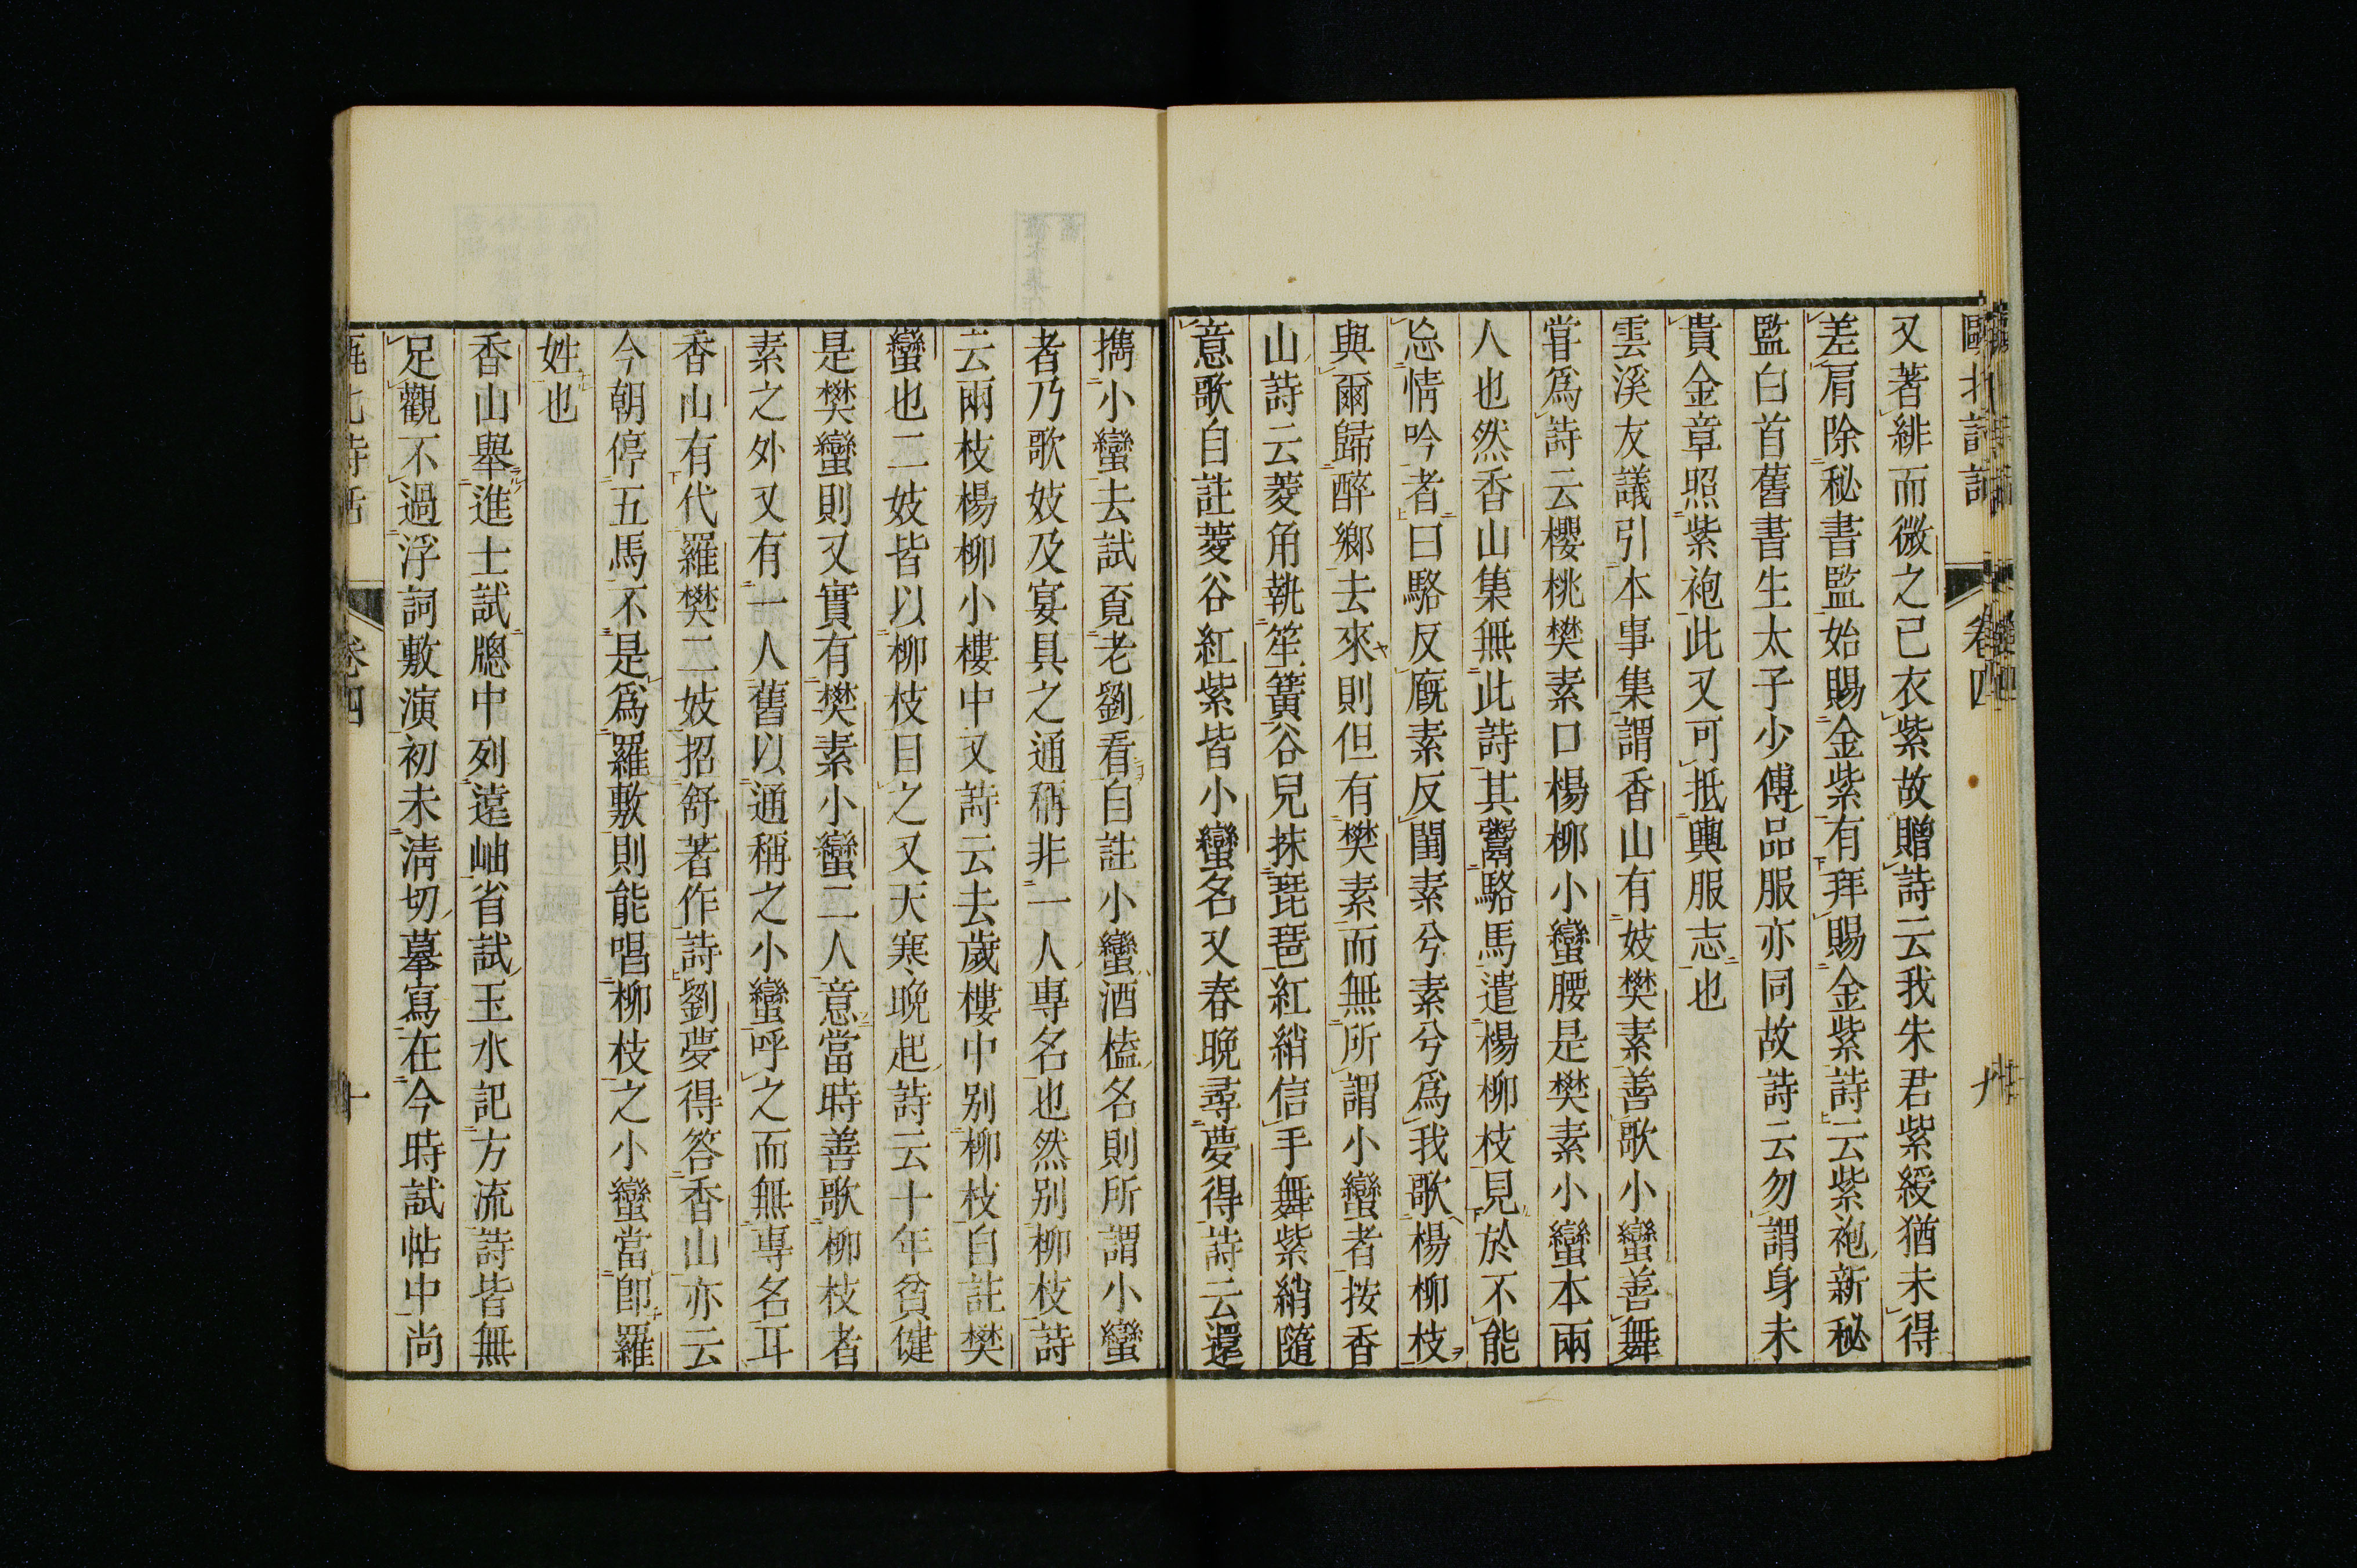 甌北詩話
卷四
九
又著緋而微之已衣紫故贈詩云我朱君紫綬猶未得
差肩除秘書監始賜金紫有拜賜金紫詩云紫袍新秘
監白首舊書生太子少傅品服亦同故詩云勿謂身未
貴金章照紫袍此又可抵輿服志也
雲溪友議引本事集謂香山有妓樊素善歌小蠻善舞
甞爲詩云櫻桃樊素口楊柳小蠻腰是樊素小蠻本兩
人也然香山集無此詩其鬻駱馬遣楊柳枝見於不能
忘情吟者曰駱反廐素反閨素兮素兮爲我歌楊柳枝
與爾歸醉鄉去來則但有樊素而無所謂小蠻者按香
山詩云菱角執笙簧谷兒抹琵琶紅綃信手舞紫綃隨
意歌自註菱谷紅紫皆小蠻名又春晚尋夢得詩云還
攜小蠻去試覓老劉看自註小蠻酒榼名則所謂小蠻
者乃歌妓及宴具之通稱非一人專名也然别柳枝詩
云兩枝楊柳小樓中又詩云去歲樓中别柳枝自註樊
蠻也二妓皆以柳枝目之又天寒晚起詩云十年貧健
是樊蠻則又實有樊素小蠻二人意當時善歌柳枝者
素之外又有一人舊以通稱之小蠻呼之而無專名耳
香山有代羅樊二妓招舒著作詩劉夢得答香山亦云
今朝停五馬不是爲羅敷則能唱柳枝之小蠻當卽羅
姓也
香山舉進士試牕中列遠岫省試玉水記方流詩皆無
足觀不過浮詞敷演初未淸切摹寫在今時試帖中尚
甌北詩話
卷四
十